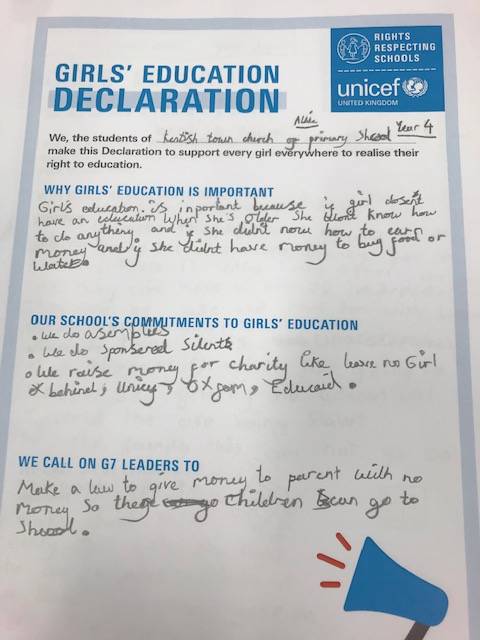 RIGHTS
RESPECTING
SCHOOLS
unicef
UNITED KINGDOM
GIRLS' EDUCATION
DECLARATION
We, the students of Kentish town church of primary Shcool Year 4
make this Declaration to support every girl everywhere to realise their
right to education.
WHY GIRLS' EDUCATION IS IMPORTANT
Girls education is inportant because if girl dosent
have an education when she's older she wont know how
to do anything. and if she didnt now how to earn
money and if she didnt have money to buy food or
water.
OUR SCHOOL'S COMMITMENTS TO GIRLS' EDUCATION
• We do asemplies
• We do Sponsered Silents
• We raise money for charity like leave no Girl
behind, Unicef, Oxfam, Educaid.
WE CALL ON G7 LEADERS TO
Make a law to give money to parent with no
money so children can go to
Shcool.